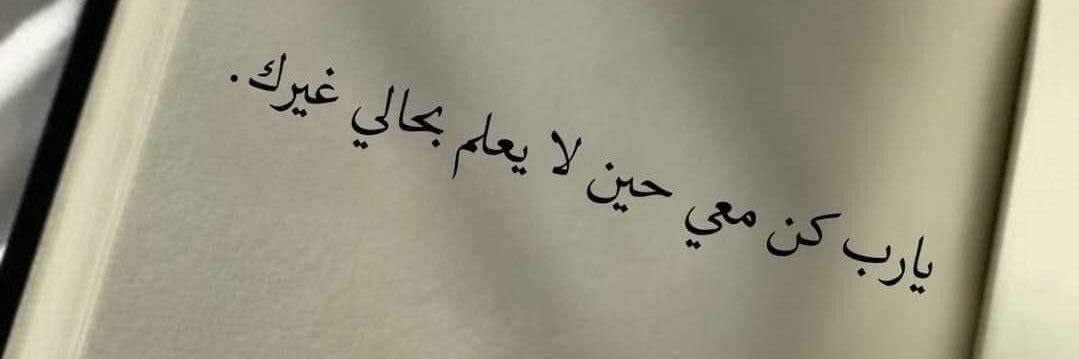 يارب كن معي حين لا يعلم بحالي غيرك.